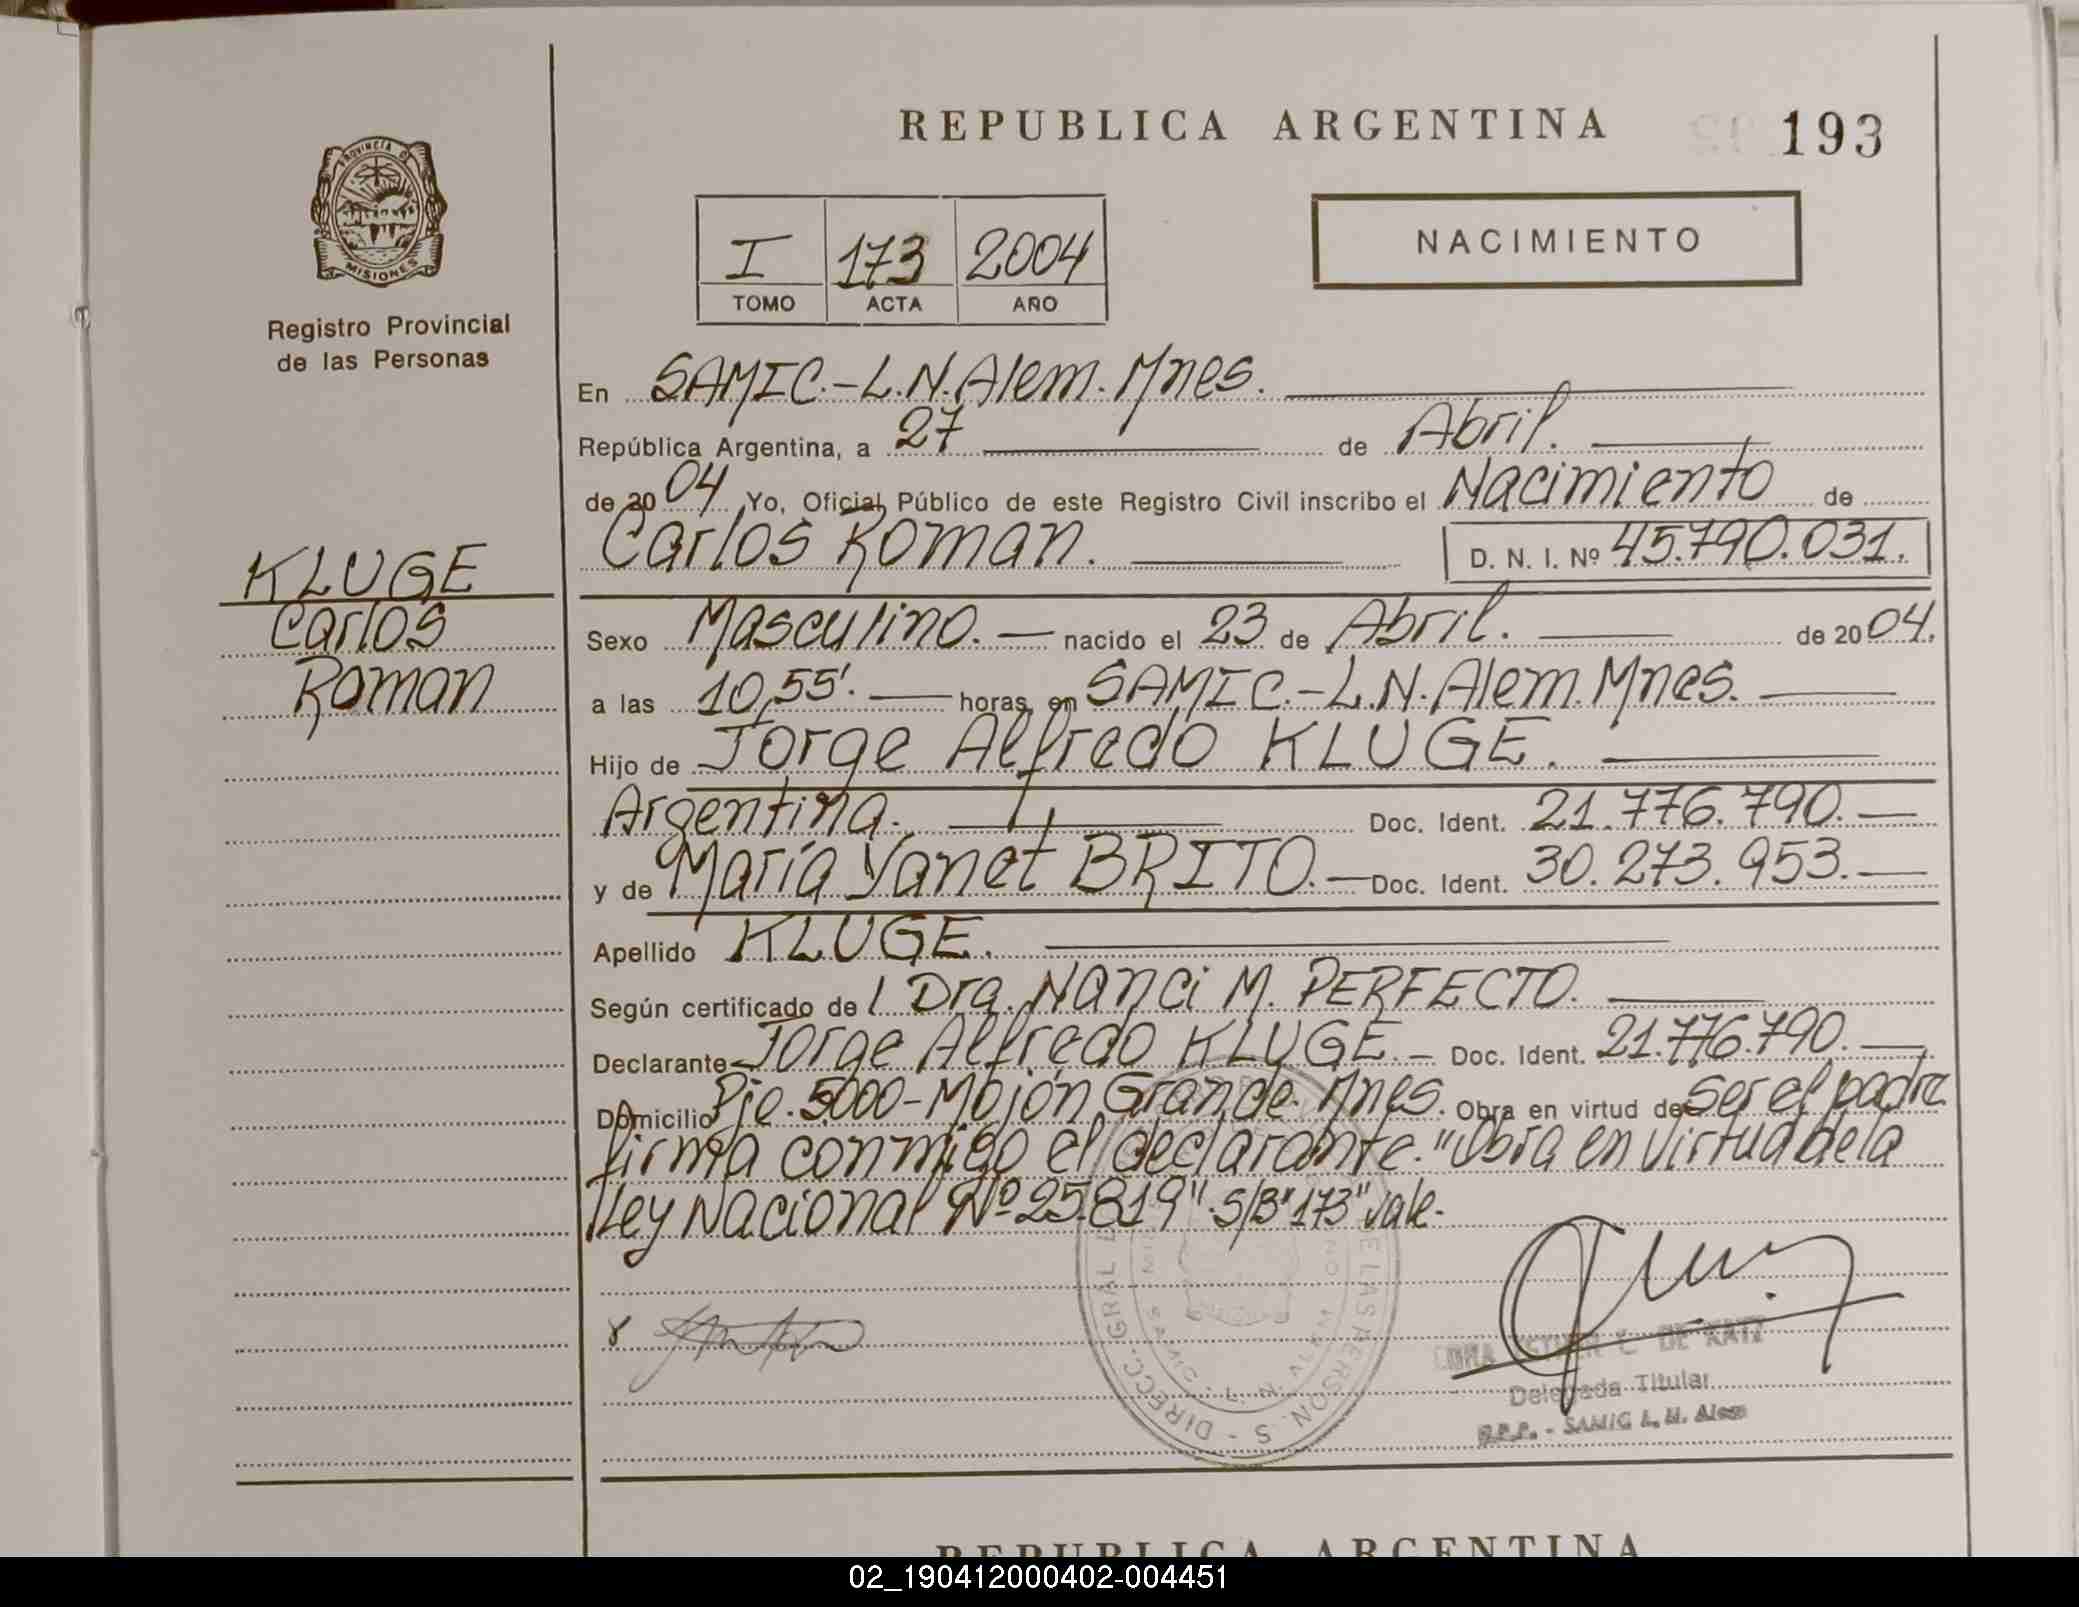 REPUBLICA ARGENTINA
193
PROVINCIA DE
MISIONES
Registro Provincial
de las Personas
NACIMIENTO
I 173 2004
TOMO ACTA AÑO
En SAMIC.-L.N.Alem.Mnes.
República Argentina, a 27 de Abril.
de 2004 Yo, Oficial Público de este Registro Civil inscribo el Nacimiento de
Carlos Roman. D. N. I. Nº 45.790.031.
KLUGE
Carlos
Roman
Sexo Masculino. nacido el 23 de Abril. de 2004.
a las 10,55'. horas, en SAMIC.-L.N.Alem.Mnes.
Hijo de Jorge Alfredo KLUGE.
Argentina. Doc. Ident. 21.776.790.
y de María Yanet BRITO. Doc. Ident. 30.273.953.
Apellido KLUGE.
Según certificado de Dra. Nanci M. PERFECTO.
Declarante Jorge Alfredo KLUGE. Doc. Ident. 21.776.790.
Domicilio Pje. 5000-Mojón Grande. Mnes. Obra en virtud de Ser el padre
firma conmigo el declarante. "Obra en virtud de la
Ley Nacional Nº 25.819". S/B "173" vale.
DE KATZ
Delegada Titular
SAMIC L. N. Alem
REPUBLICA ARGENTINA
02_190412000402-004451